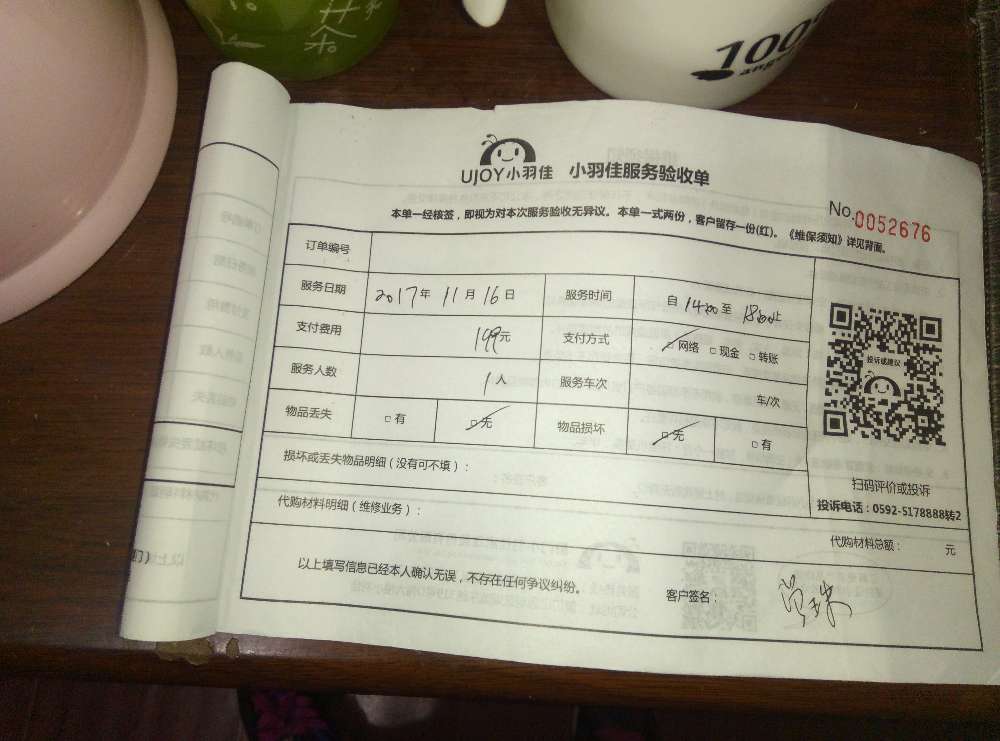 100
UJOY小羽佳 小羽佳服务验收单
No.0052676
本单一经核签，即视为对本次服务验收无异议。本单一式两份，客户留存一份(红)。《维保须知》详见背面。
订单编号
服务日期 2017年 11月 16日 服务时间 自 1400 至 1800止
支付费用 199元 支付方式 □网络 □现金 □转账
服务人数 1人 服务车次 车/次
物品丢失 □有 □无 物品损坏 □无 □有
投诉或建议
损坏或丢失物品明细（没有可不填）：
扫码评价或投诉
投诉电话：0592-5178888转2
代购材料明细（维修业务）：
代购材料总额： 元
以上填写信息已经本人确认无误，不存在任何争议纠纷。
客户签名：